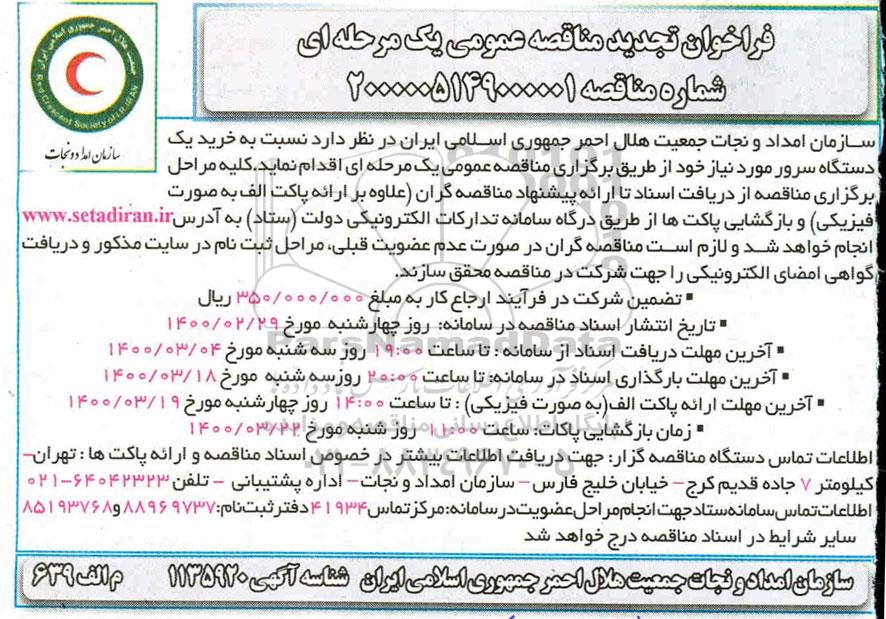 فراخوان تجدید مناقصه عمومی یک مرحله ای
شماره مناقصه ۲۰۰۰۰۰۵۱۴۹۰۰۰۰۰۱
جمعیت هلال احمر جمهوری اسلامی ایران
Red Crescent Society of I.R.IRAN
سازمان امداد و نجات
سازمان امداد و نجات جمعیت هلال احمر جمهوری اسلامی ایران در نظر دارد نسبت به خرید یک
دستگاه سرور مورد نیاز خود از طریق برگزاری مناقصه عمومی یک مرحله ای اقدام نماید.کلیه مراحل
برگزاری مناقصه از دریافت اسناد تا ارائه پیشنهاد مناقصه گران (علاوه بر ارائه پاکت الف به صورت
فیزیکی) و بازگشایی پاکت ها از طریق درگاه سامانه تدارکات الکترونیکی دولت (ستاد) به آدرس www.setadiran.ir
انجام خواهد شد و لازم است مناقصه گران در صورت عدم عضویت قبلی، مراحل ثبت نام در سایت مذکور و دریافت
گواهی امضای الکترونیکی را جهت شرکت در مناقصه محقق سازند.
▪ تضمین شرکت در فرآیند ارجاع کار به مبلغ ۳۵۰/۰۰۰/۰۰۰ ریال
▪ تاریخ انتشار اسناد مناقصه در سامانه: روز چهارشنبه مورخ ۱۴۰۰/۰۲/۲۹
▪ آخرین مهلت دریافت اسناد از سامانه : تا ساعت ۱۹:۰۰ روز سه شنبه مورخ ۱۴۰۰/۰۳/۰۴
▪ آخرین مهلت بارگذاری اسناد در سامانه: تا ساعت ۲۰:۰۰ روزسه شنبه مورخ ۱۴۰۰/۰۳/۱۸
▪ آخرین مهلت ارائه پاکت الف(به صورت فیزیکی) : تا ساعت ۱۴:۰۰ روز چهارشنبه مورخ ۱۴۰۰/۰۳/۱۹
▪ زمان بازگشایی پاکات: ساعت ۱۱:۰۰ روز شنبه مورخ ۱۴۰۰/۰۳/۲۲
اطلاعات تماس دستگاه مناقصه گزار: جهت دریافت اطلاعات بیشتر در خصوص اسناد مناقصه و ارائه پاکت ها : تهران–
کیلومتر ۷ جاده قدیم کرج– خیابان خلیج فارس– سازمان امداد و نجات– اداره پشتیبانی – تلفن ۶۴۰۴۲۳۲۳-۰۲۱
اطلاعات تماس سامانه ستاد جهت انجام مراحل عضویت در سامانه: مرکز تماس ۴۱۹۳۴ دفتر ثبت نام: ۸۸۹۶۹۷۳۷ و ۸۵۱۹۳۷۶۸
سایر شرایط در اسناد مناقصه درج خواهد شد
سازمان امداد و نجات جمعیت هلال احمر جمهوری اسلامی ایران شناسه آگهی ۱۱۳۵۹۲۰ م الف ۶۳۹
ParsNamadData